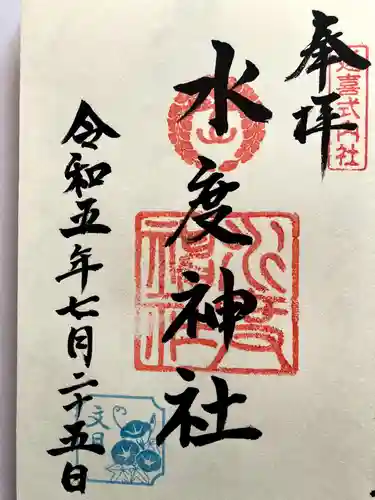 奉拝
延喜式内社
水度神社
水度神社
令和五年七月二十五日
文月